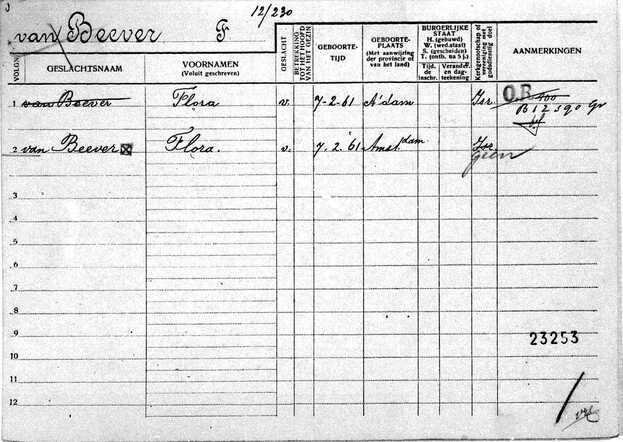 12/230
van Beever F
VOLGN.
GESLACHTSNAAM
VOORNAMEN
(Voluit geschreven)
GESLACHT
BETREKKING TOT HET HOOFD VAN HET GEZIN
GEBOORTE-
TIJD
GEBOORTE-
PLAATS
(Met aanwijzing
der provincie of
van het land)
BURGERLIJKE
STAAT
H. (gehuwd)
W. (wed.staat)
S. (gescheiden)
T. (ontb. na 5 j.)
Tijd. de inschr.
Verander. en dag-
teekening
Kerkgenootschap of vereeniging met godsdienstig doel
AANMERKINGEN
1 van Beever Flora v. 7-2-61 A'dam Isr. O.R. 400
B 12390 Gr
2 van Beever Flora. v. 7.2.61 Amst.dam Isr.
geen
3
4
5
6
7
8
9
23253
10
11
12